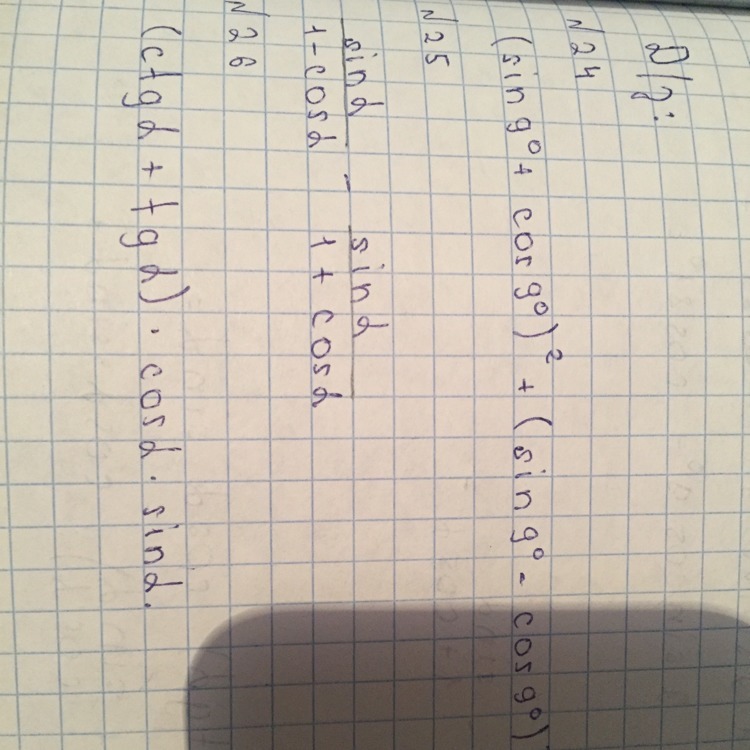 Д/з:
№24
(sin9° + cos9°)² + (sin9° - cos9°)
№25
sinα / 1-cosα - sinα / 1+cosα
№26
(ctgα + tgα) · cosα · sinα.